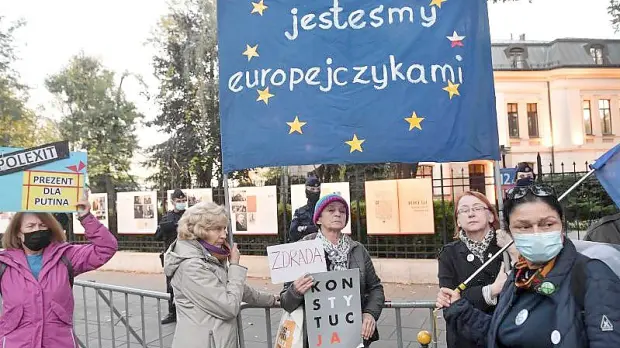 jesteśmy
europejczykami
POLEXIT
PREZENT
DLA
PUTINA
ZDRADA
KON
STY
TUC
JA